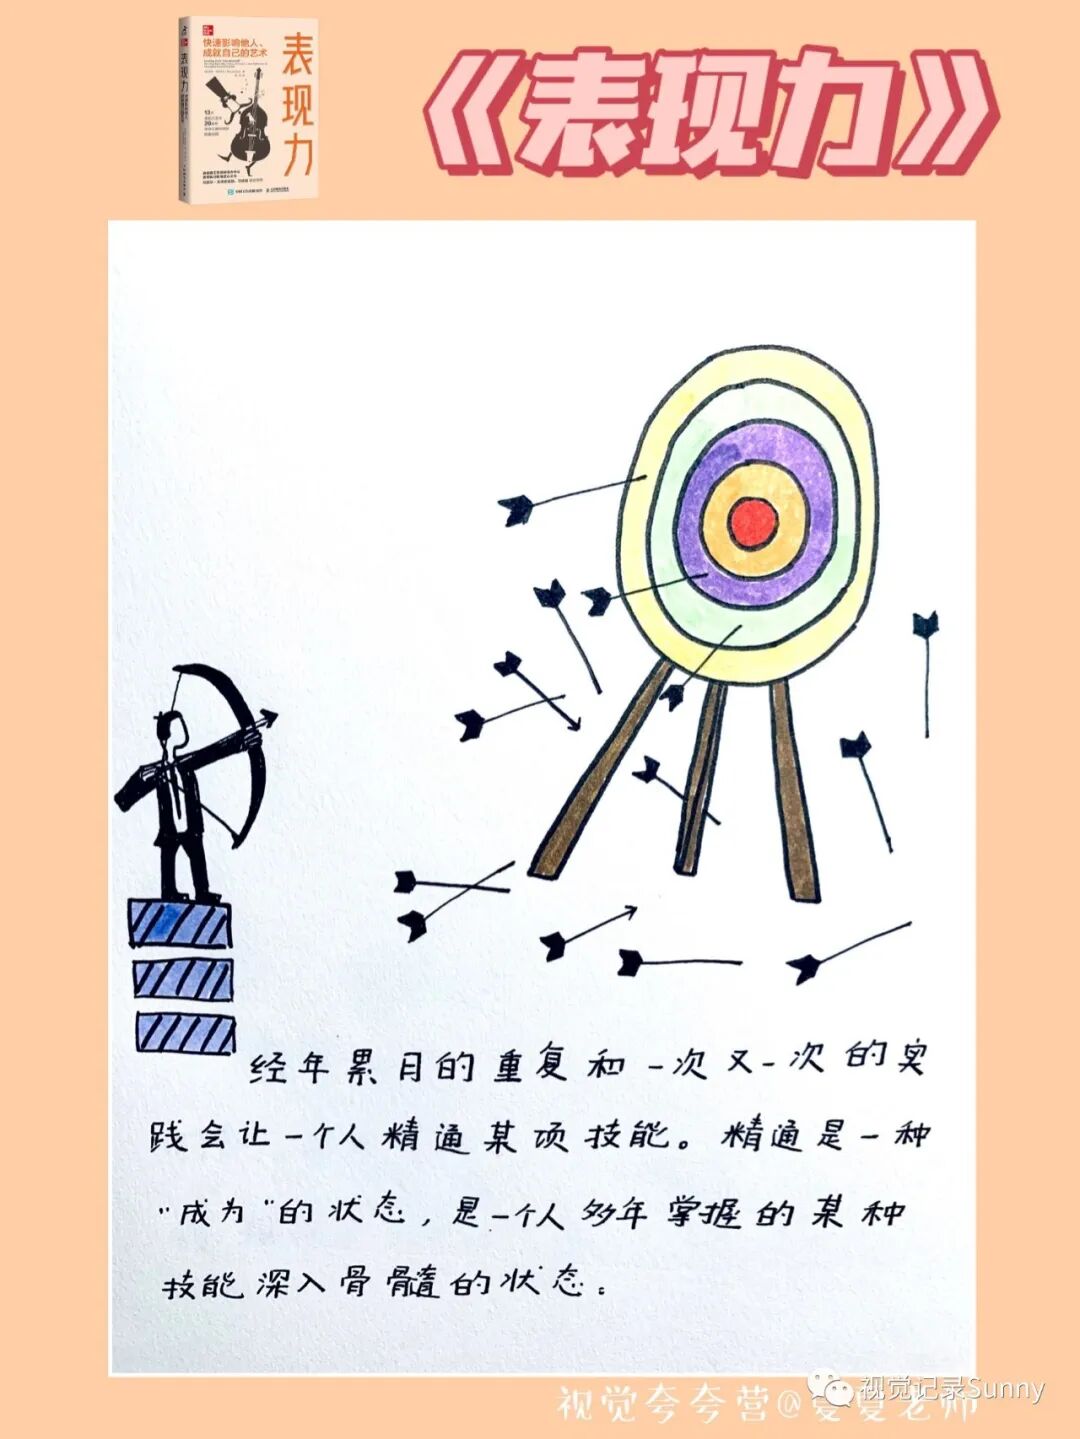 快速影响他人、
成就自己的艺术
表现力
表现力
《表现力》
经年累月的重复和一次又一次的实
践会让一个人精通某项技能。精通是一种
“成为”的状态，是一个人多年掌握的某种
技能深入骨髓的状态。
视觉记录Sunny
视觉夸夸营@夏夏老师